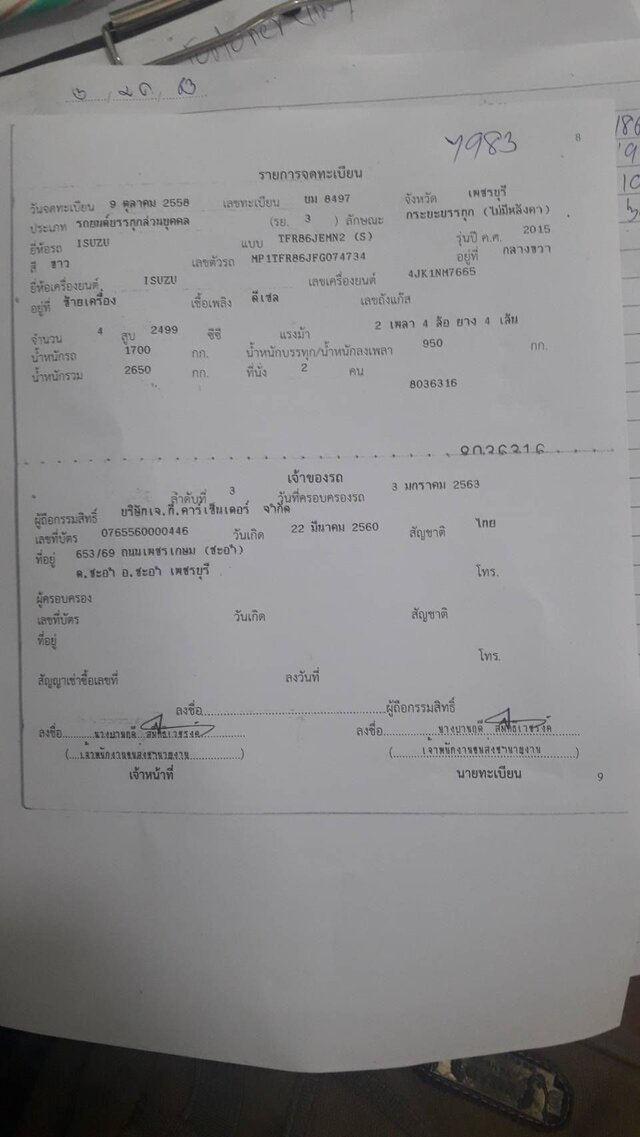 ๒ มค. ๖๓
7983
8
รายการจดทะเบียน
วันจดทะเบียน 9 ตุลาคม 2558 เลขทะเบียน บม 8497 จังหวัด เพชรบุรี
ประเภท รถยนต์บรรทุกส่วนบุคคล (รย. 3 ) ลักษณะ กระบะบรรทุก (ไม่มีหลังคา)
ยี่ห้อรถ ISUZU แบบ TFR86JEMN2 (S) รุ่นปี ค.ศ. 2015
สี ขาว เลขตัวรถ MP1TFR86JFG074734 อยู่ที่ กลางขวา
ยี่ห้อเครื่องยนต์ ISUZU เลขเครื่องยนต์ 4JK1NM7665
อยู่ที่ ซ้ายเครื่อง เชื้อเพลิง ดีเซล เลขถังแก๊ส
จำนวน 4 สูบ 2499 ซีซี แรงม้า 2 เพลา 4 ล้อ ยาง 4 เส้น
น้ำหนักรถ 1700 กก. น้ำหนักบรรทุก/น้ำหนักลงเพลา 950 กก.
น้ำหนักรวม 2650 กก. ที่นั่ง 2 คน
8036316
เจ้าของรถ
ลำดับที่ 3 วันที่ครอบครองรถ 3 มกราคม 2563
ผู้ถือกรรมสิทธิ์ บริษัทเจ.ที.คาร์เซ็นเตอร์ จำกัด
เลขที่บัตร 0765560000446 วันเกิด 22 มีนาคม 2560 สัญชาติ ไทย
ที่อยู่ 653/69 ถนนเพชรเกษม (ชะอำ)
ต.ชะอำ อ.ชะอำ เพชรบุรี โทร.
ผู้ครอบครอง
เลขที่บัตร วันเกิด สัญชาติ
ที่อยู่
โทร.
สัญญาเช่าซื้อเลขที่ ลงวันที่
ลงชื่อ ผู้ถือกรรมสิทธิ์
ลงชื่อ ลงชื่อ
(เจ้าพนักงานขนส่งชำนาญงาน) (เจ้าพนักงานขนส่งชำนาญงาน)
เจ้าหน้าที่ นายทะเบียน
9